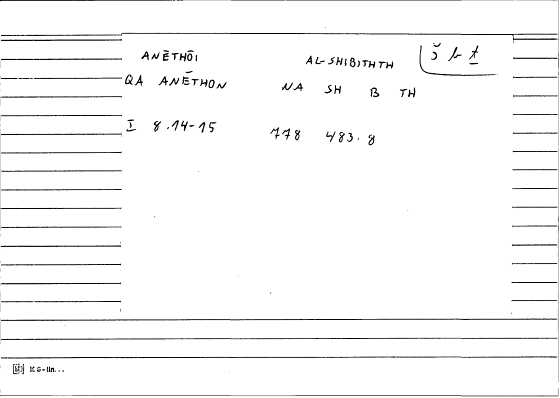 ANĒTHŌI AL-SHIBITHTH š b ṯ
QA ANĒTHON NA SH B TH
I 8.14-15 778 483.8